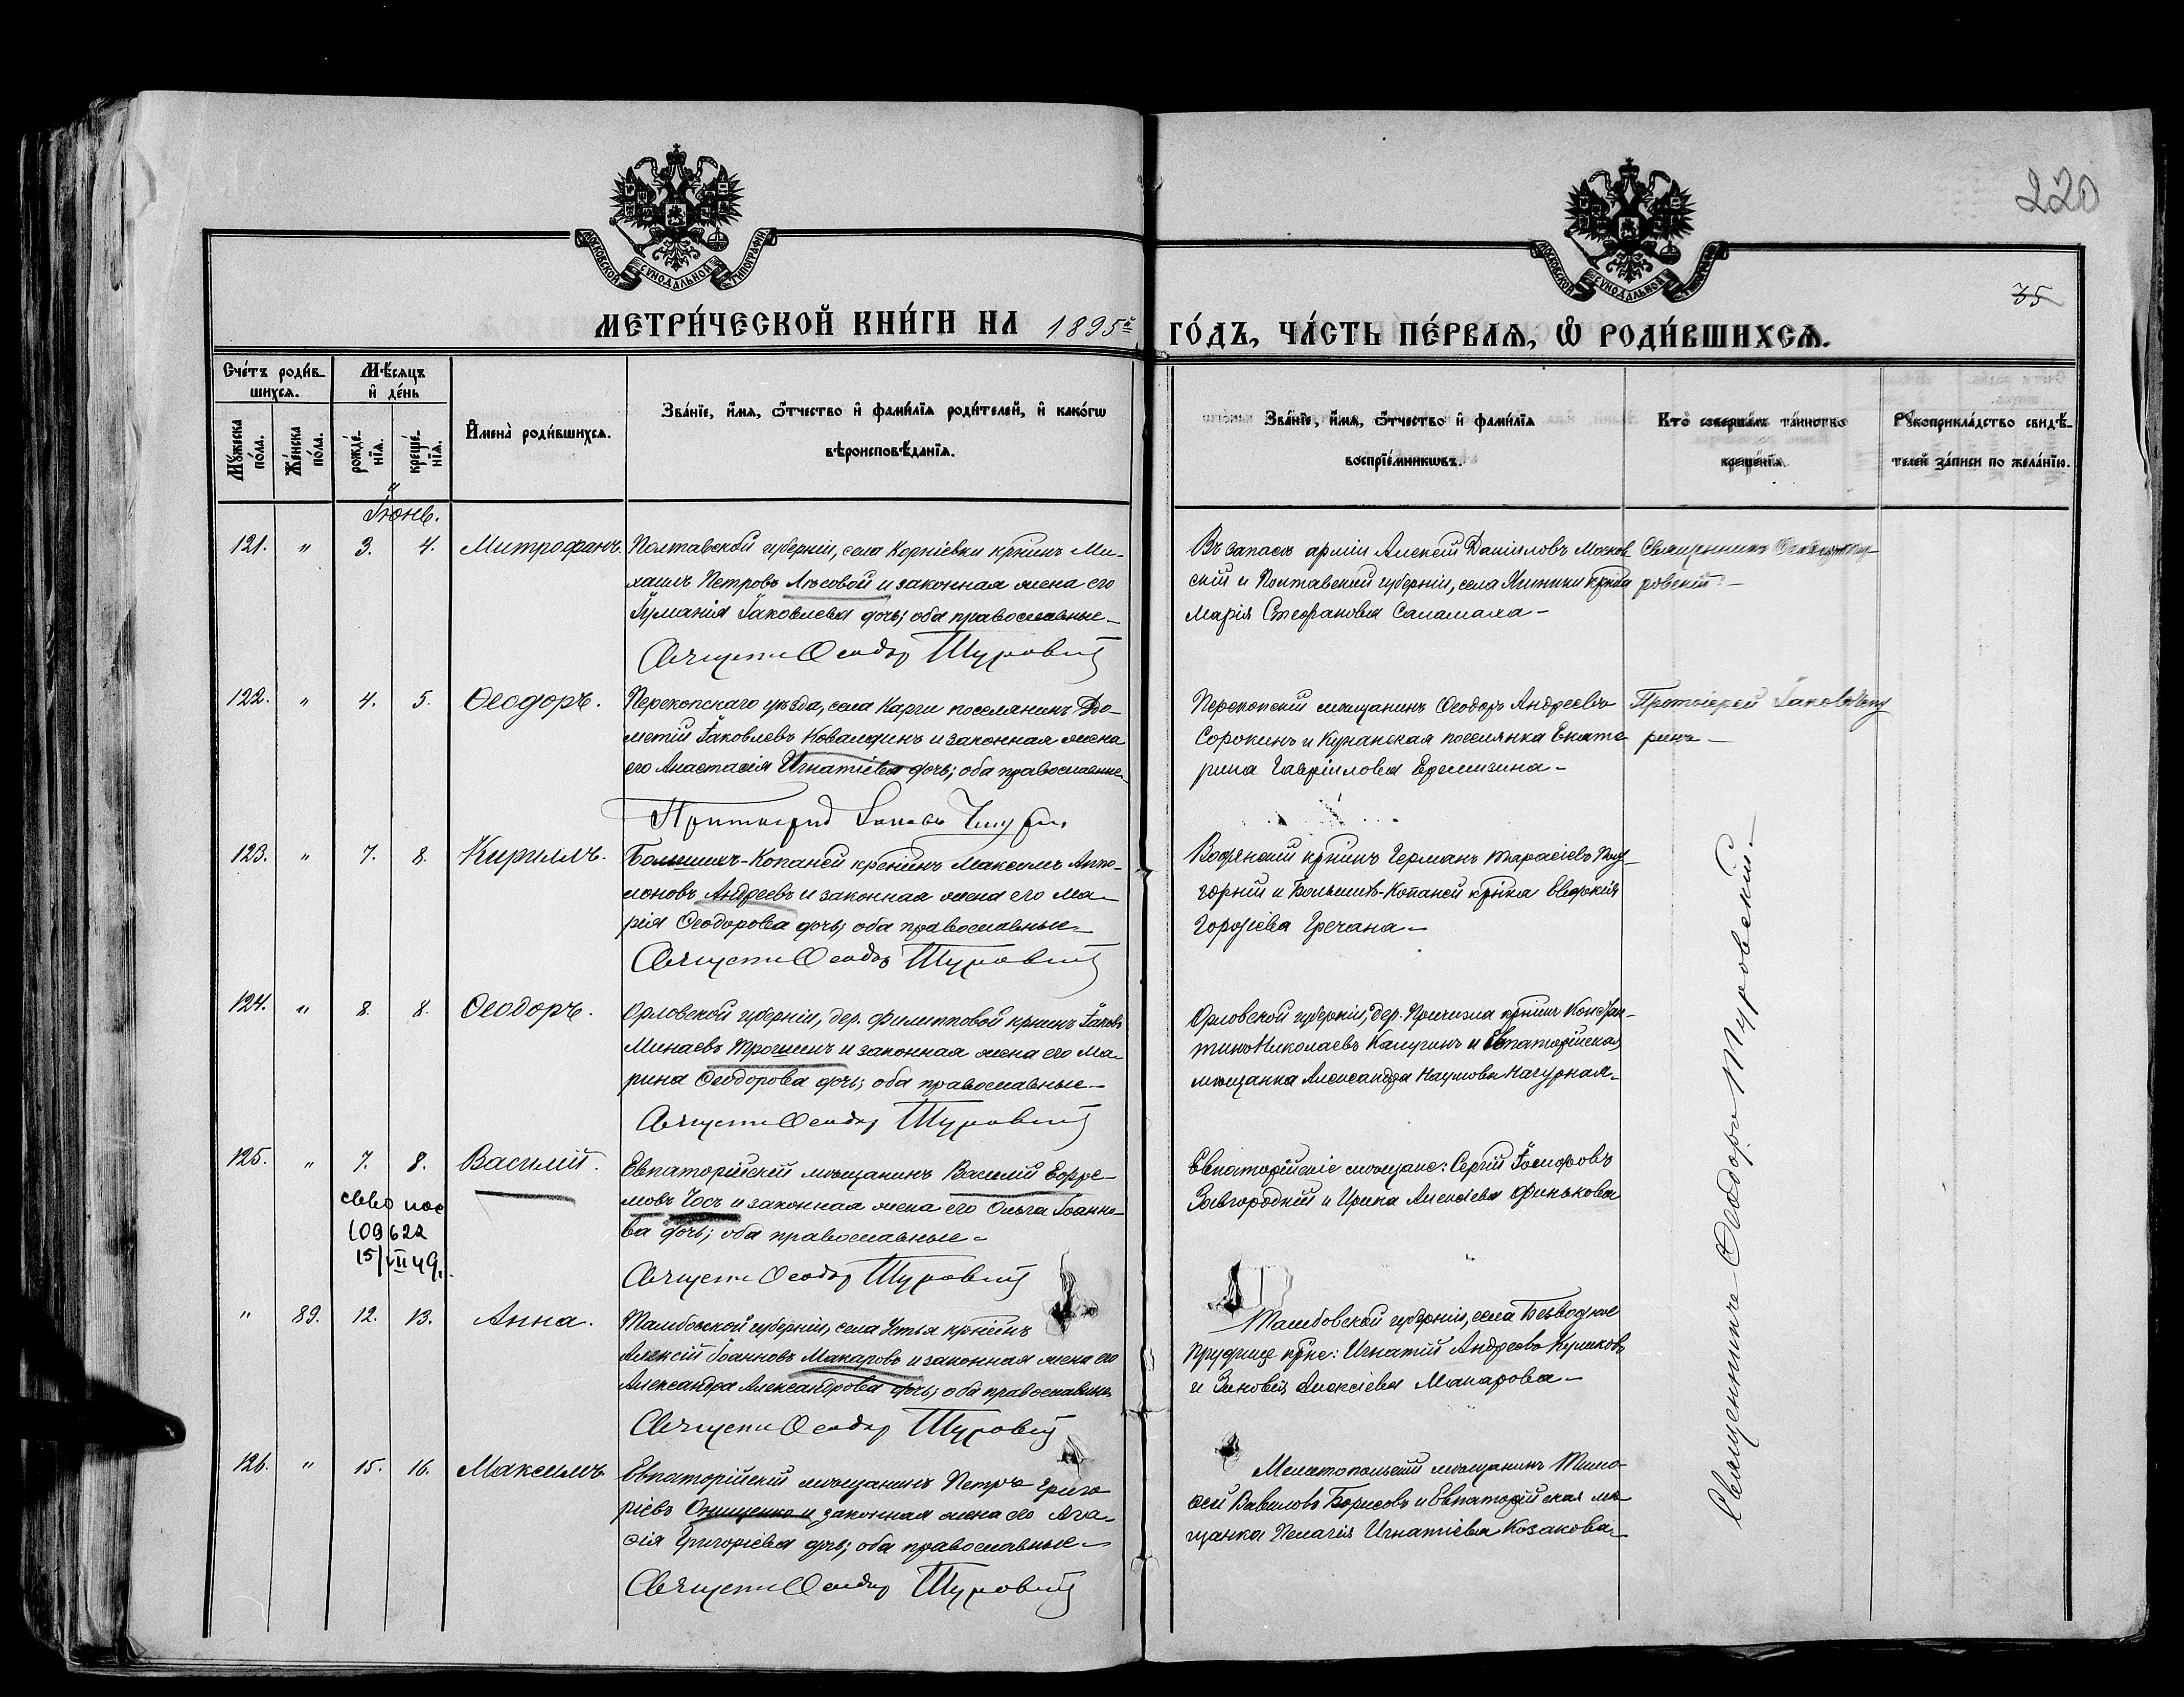 220
МОСКОВСКОЙ СУНОДАЛЬНОЙ ТИПОГРАФІИ
МОСКОВСКОЙ СУНОДАЛЬНОЙ ТИПОГРАФІИ
35
МЕТРИ́ЧЕСКОЙ КНИ́ГИ НА 1895й
ГО́ДЪ, ЧА́СТЬ ПЕ́РВАѦ, Ѡ҆ РОДИ́ВШИХСѦ.
Сче́тъ роди́в-
шихсѧ.
Мꙋ́жеска
по́ла.
Же́нска
по́ла.
Мѣ́сѧцъ
и҆ де́нь
рожде́-
нїѧ.
креще́-
нїѧ.
И҆мена̀ роди́вшихсѧ.
Зва́нїе, и҆́мѧ, ѻ҆́тчество и҆ фами́лїѧ роди́телей, и҆ како́гѡ
вѣроисповѣ́данїѧ.
Зва́нїе, и҆́мѧ, ѻ҆́тчество и҆ фами́лїѧ
воспрїе́мникѡвъ.
Кто̀ соверша́лъ та́инство
креще́нїѧ.
Рꙋкоприкла́дство свидѣ́-
телей за́писи по жела́нїю.
Іюнь.
121. " 3. 4. Митрофанъ.
Полтавской губерніи, села Корніевки кр̃нинъ Ми-
хаилъ Петровъ Лѣсовой и законная жена его
Іуліанія Іаковлева дочь; оба православные.
Священ Ѳеодор Туровскій
Въ запасѣ арміи Алексій Даніиловъ Москов
скій и Полтавской губерніи, села
Марія Стефанова Саламаха
Священникъ
ровскій
122. " 4. 5. Ѳеодоръ.
Перекопскаго уѣзда, села Карги поселянинъ До-
метій Іаковлевъ и законная жена
его Анастасія Игнатіева дочь; оба православные.
Протоіерей Іаковъ
Перекопскій мѣщанинъ Ѳеодоръ Андреевъ
Сорокинъ и поселянка Екате
рина Гавріилова
Протоіерей Іаковъ
123. " 7. 8. Кириллъ.
Большихъ-Копаней кр̃нинъ Максимъ Аппо-
лоновъ Андреевъ и законная жена его Ма-
рія Ѳеодорова дочь; оба православные
Священ Ѳеодор Туровскій
кр̃нинъ Германъ Тарасіевъ Под-
горній и Большихъ-Копаней кр̃нка Евдокія
Гречана
124. " 8. 8. Ѳеодоръ.
Орловской губерніи, дер. Филипповой кр̃нинъ Іаковъ
Минаевъ Трошинъ и законная жена его Ма-
рина Ѳеодорова дочь; оба православные
Священ Ѳеодор Туровскій
Орловской губерніи, дер. кр̃нинъ Констан-
тинъ Николаевъ Калугинъ и Евпаторійская
мѣщанка Александра Наумова Нагурная
125. " 7. 8. Василій.
109622
15/VII 49.
Евпаторійскій мѣщанинъ Василій Ефре-
мовъ Чосъ и законная жена его Ольга Іоанно-
ва дочь; оба православные
Священ Ѳеодор Туровскій
Евпаторійскіе мѣщане: Сергій Іосифовъ
Завгородній и Ирина Алексіева Финькова
" 89. 12. 13. Анна.
Тамбовской губерніи, села Устья кр̃нинъ
Алексій Іоанновъ Макаровъ и законная жена его
Александра Александрова дочь; оба православные
Священ Ѳеодор Туровскій
Тамбовской губерніи, села Безводное
Прудище кр̃не: Игнатій Андреевъ Куликовъ
и Зиновія Алексіева Макарова
126. " 15. 16. Максимъ
Евпаторійскій мѣщанинъ Петръ Григо
ріевъ Онищенко и законная жена его Ага-
ѳія Григоріева дочь; оба православные
Священ Ѳеодор Туровскій
Мелитопольскій мѣщанинъ Тимо-
ѳей Вавиловъ Борисовъ и Евпаторійская мѣ
щанка Пелагія Игнатіева Козакова
Священникъ Ѳеодоръ Туровскій